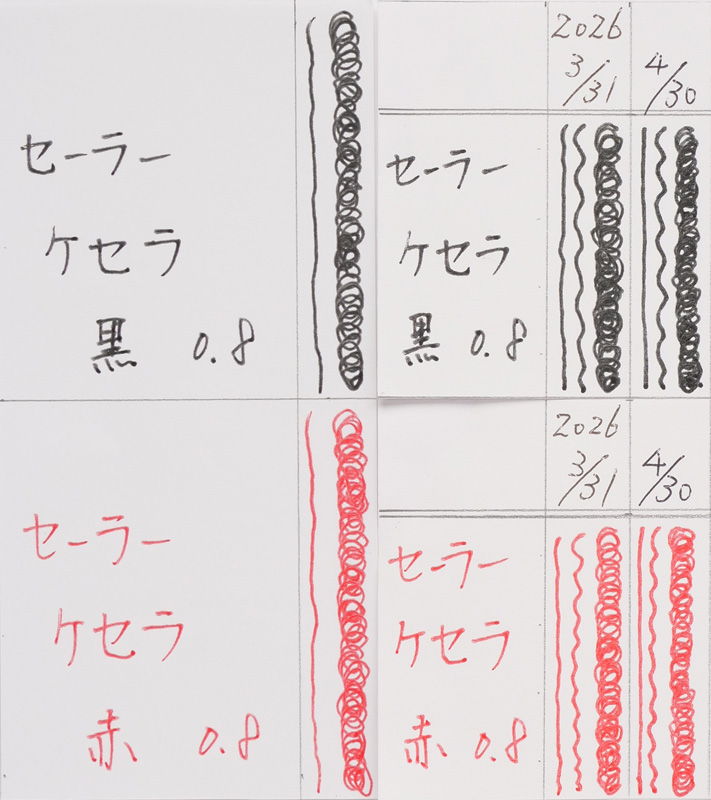 セーラー
ケセラ
黒 0.8
2026
3/31 4/30
セーラー
ケセラ
黒 0.8
セーラー
ケセラ
赤 0.8
2026
3/31 4/30
セーラー
ケセラ
赤 0.8